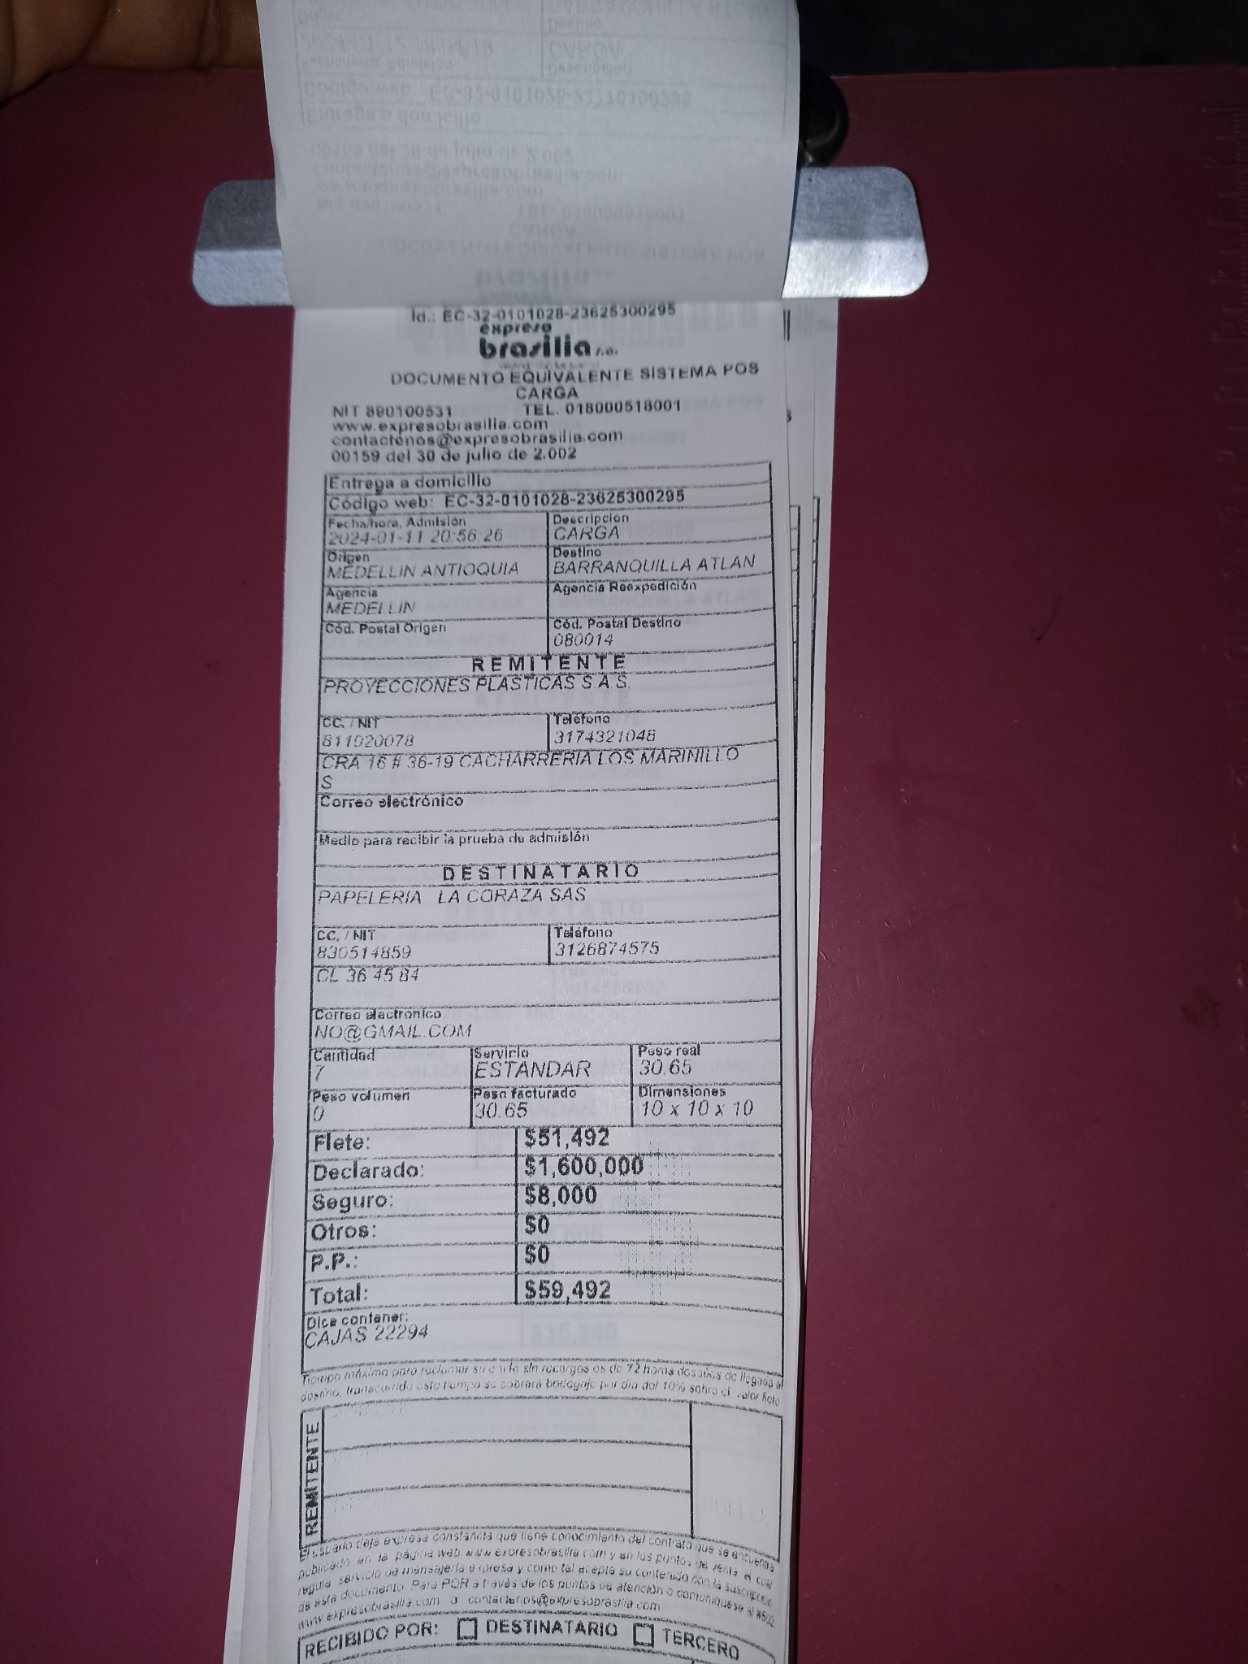 Código web: EC-32-0101028-23770100295
Entrega a domicilio
00159 del 30 de julio de 2.002
contactenos@expresobrasilia.com
www.expresobrasilia.com
NIT 890100531 TEL. 018000518001
CARGA
DOCUMENTO EQUIVALENTE SISTEMA POS
brasilia
Id.: EC-32-0101028-23625300295
expreso
brasilia s.a.
DOCUMENTO EQUIVALENTE SISTEMA POS
CARGA
NIT 890100531 TEL. 018000518001
www.expresobrasilia.com
contactenos@expresobrasilia.com
00159 del 30 de julio de 2.002
Entrega a domicilio
Código web: EC-32-0101028-23625300295
Fecha/hora, Admisión Descripción
2024-01-11 20:56:26 CARGA
Origen Destino
MEDELLIN ANTIOQUIA BARRANQUILLA ATLAN
Agencia Agencia Reexpedición
MEDELLIN
Cód. Postal Origen Cód. Postal Destino
080014
REMITENTE
PROYECCIONES PLASTICAS S.A.S.
CC. / NIT Teléfono
811020078 3174321048
CRA 16 # 36-19 CACHARRERIA LOS MARINILLO
S
Correo electrónico
Medio para recibir la prueba de admisión
DESTINATARIO
PAPELERIA LA CORAZA SAS
CC. / NIT Teléfono
830514859 3126874575
CL 36 45 84
Correo electrónico
NO@GMAIL.COM
Cantidad Servicio Peso real
7 ESTANDAR 30.65
Peso volumen Peso facturado Dimensiones
0 30.65 10 x 10 x 10
Flete: $51,492
Declarado: $1,600,000
Seguro: $8,000
Otros: $0
P.P.: $0
Total: $59,492
Dice contener:
CAJAS 22294
Tiempo máximo para reclamar su envío sin recargos es de 72 horas después de llegada al
destino, transcurrido este tiempo se cobrará bodegaje por día del 10% sobre el valor flete
REMITENTE
El usuario deja expresa constancia que tiene conocimiento del contrato que se encuentra
publicado en la página web www.expresobrasilia.com y en los puntos de venta, el cual
regula servicio de mensajería expresa y como tal acepta su contenido con la suscripción
de este documento. Para PQR a través de los puntos de atención o comuníquese al
www.expresobrasilia.com o contactenos@expresobrasilia.com
RECIBIDO POR: DESTINATARIO TERCERO